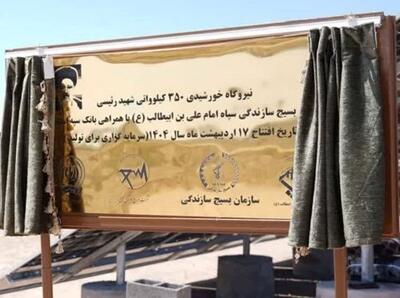 نیروگاه خورشیدی ۳۵۰ کیلوواتی شهید رئیسی
بسیج سازندگی سپاه امام علی بن ابیطالب (ع) با همراهی بانک سپه
تاریخ افتتاح ۱۷ اردیبهشت ماه سال ۱۴۰۴(سرمایه گزاری برای تولید
سازمان بسیج سازندگی